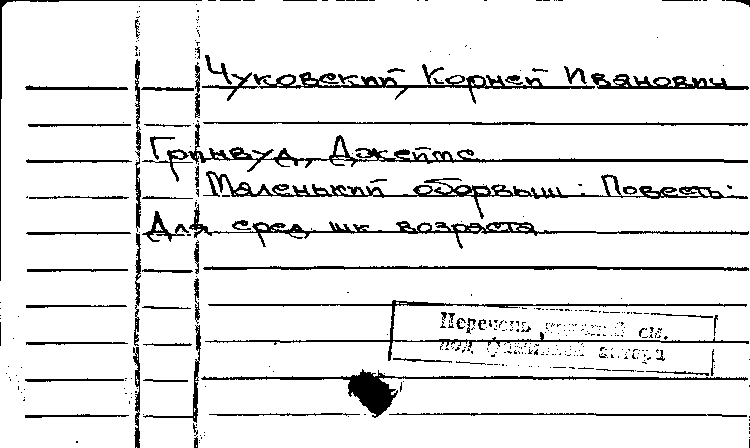 Чуковский, Корней Иванович
Гринвуд, Джеймс
Маленький оборвыш: Повесть:
Для сред. шк. возраста
Перечень изданий см.
под фамилией автора